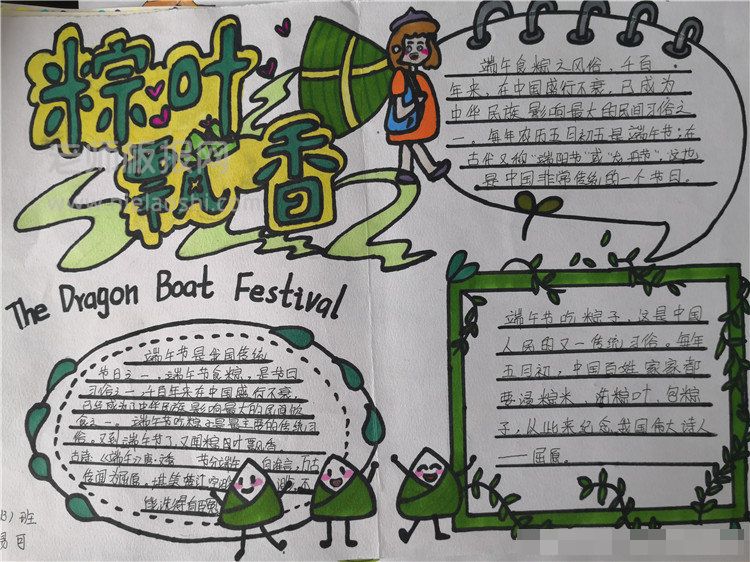 粽叶
飘香
The Dragon Boat Festival
端午食粽之风俗，千百
年来，在中国盛行不衰，已成为
中华民族影响最大的民间习俗之
一。每年农历五月初五是端午节；在
古代又称"端阳节"或"龙舟节"这也
是中国非常传统的一个节日。
端午节是我国传统
节日之一，端午节食粽，是节日
习俗之一，千百年来在中国盛行不衰
已经成为了中华民族影响最大的民间饮
食之一，端午节吃粽子是最主要的传统习
俗。又到端午节了，又闻粽叶飘香
古诗《端午》唐·文秀 节分端午自谁言，万古
传闻为屈原。堪笑楚江空
能洗得
端午节吃粽子，这是中国
人民的又一传统习俗。每年
五月初，中国百姓家家都
要浸粽米、洗粽叶、包粽
子，以此来纪念我国伟大诗人
——屈原。
班
老师板报网